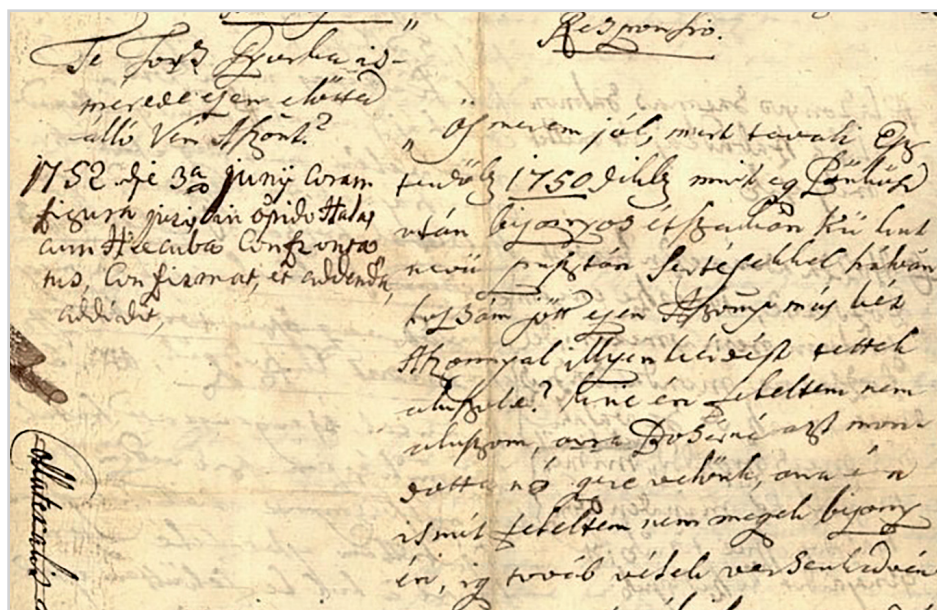 Responsio.
Te Joós Gyurka is-
mérede ezen előtted
álló Vén Aszont?
1752 die 3a Junÿ Coram
figura juris in oppido Halas
cum Hecuba Confronta
tus, Confirmat, et addendũ,
addidit,
Ösmerem jól, mert tavali Esz
tendőb 1750dikb mint eg Pünkösd
után bizonyos étszakán Kü
nevü pusztán Sertésekkel hálván
hozzám jött ezen Aszony más két
Aszonnyal illyen kérdést tettek
aluszole? kire én feleltem nem
aluszom, arra Bosené azt mon
dotta nó gere velünk, arra én
ismét feleltem nem megek bizony
én, ig továb vélek versenkedvén